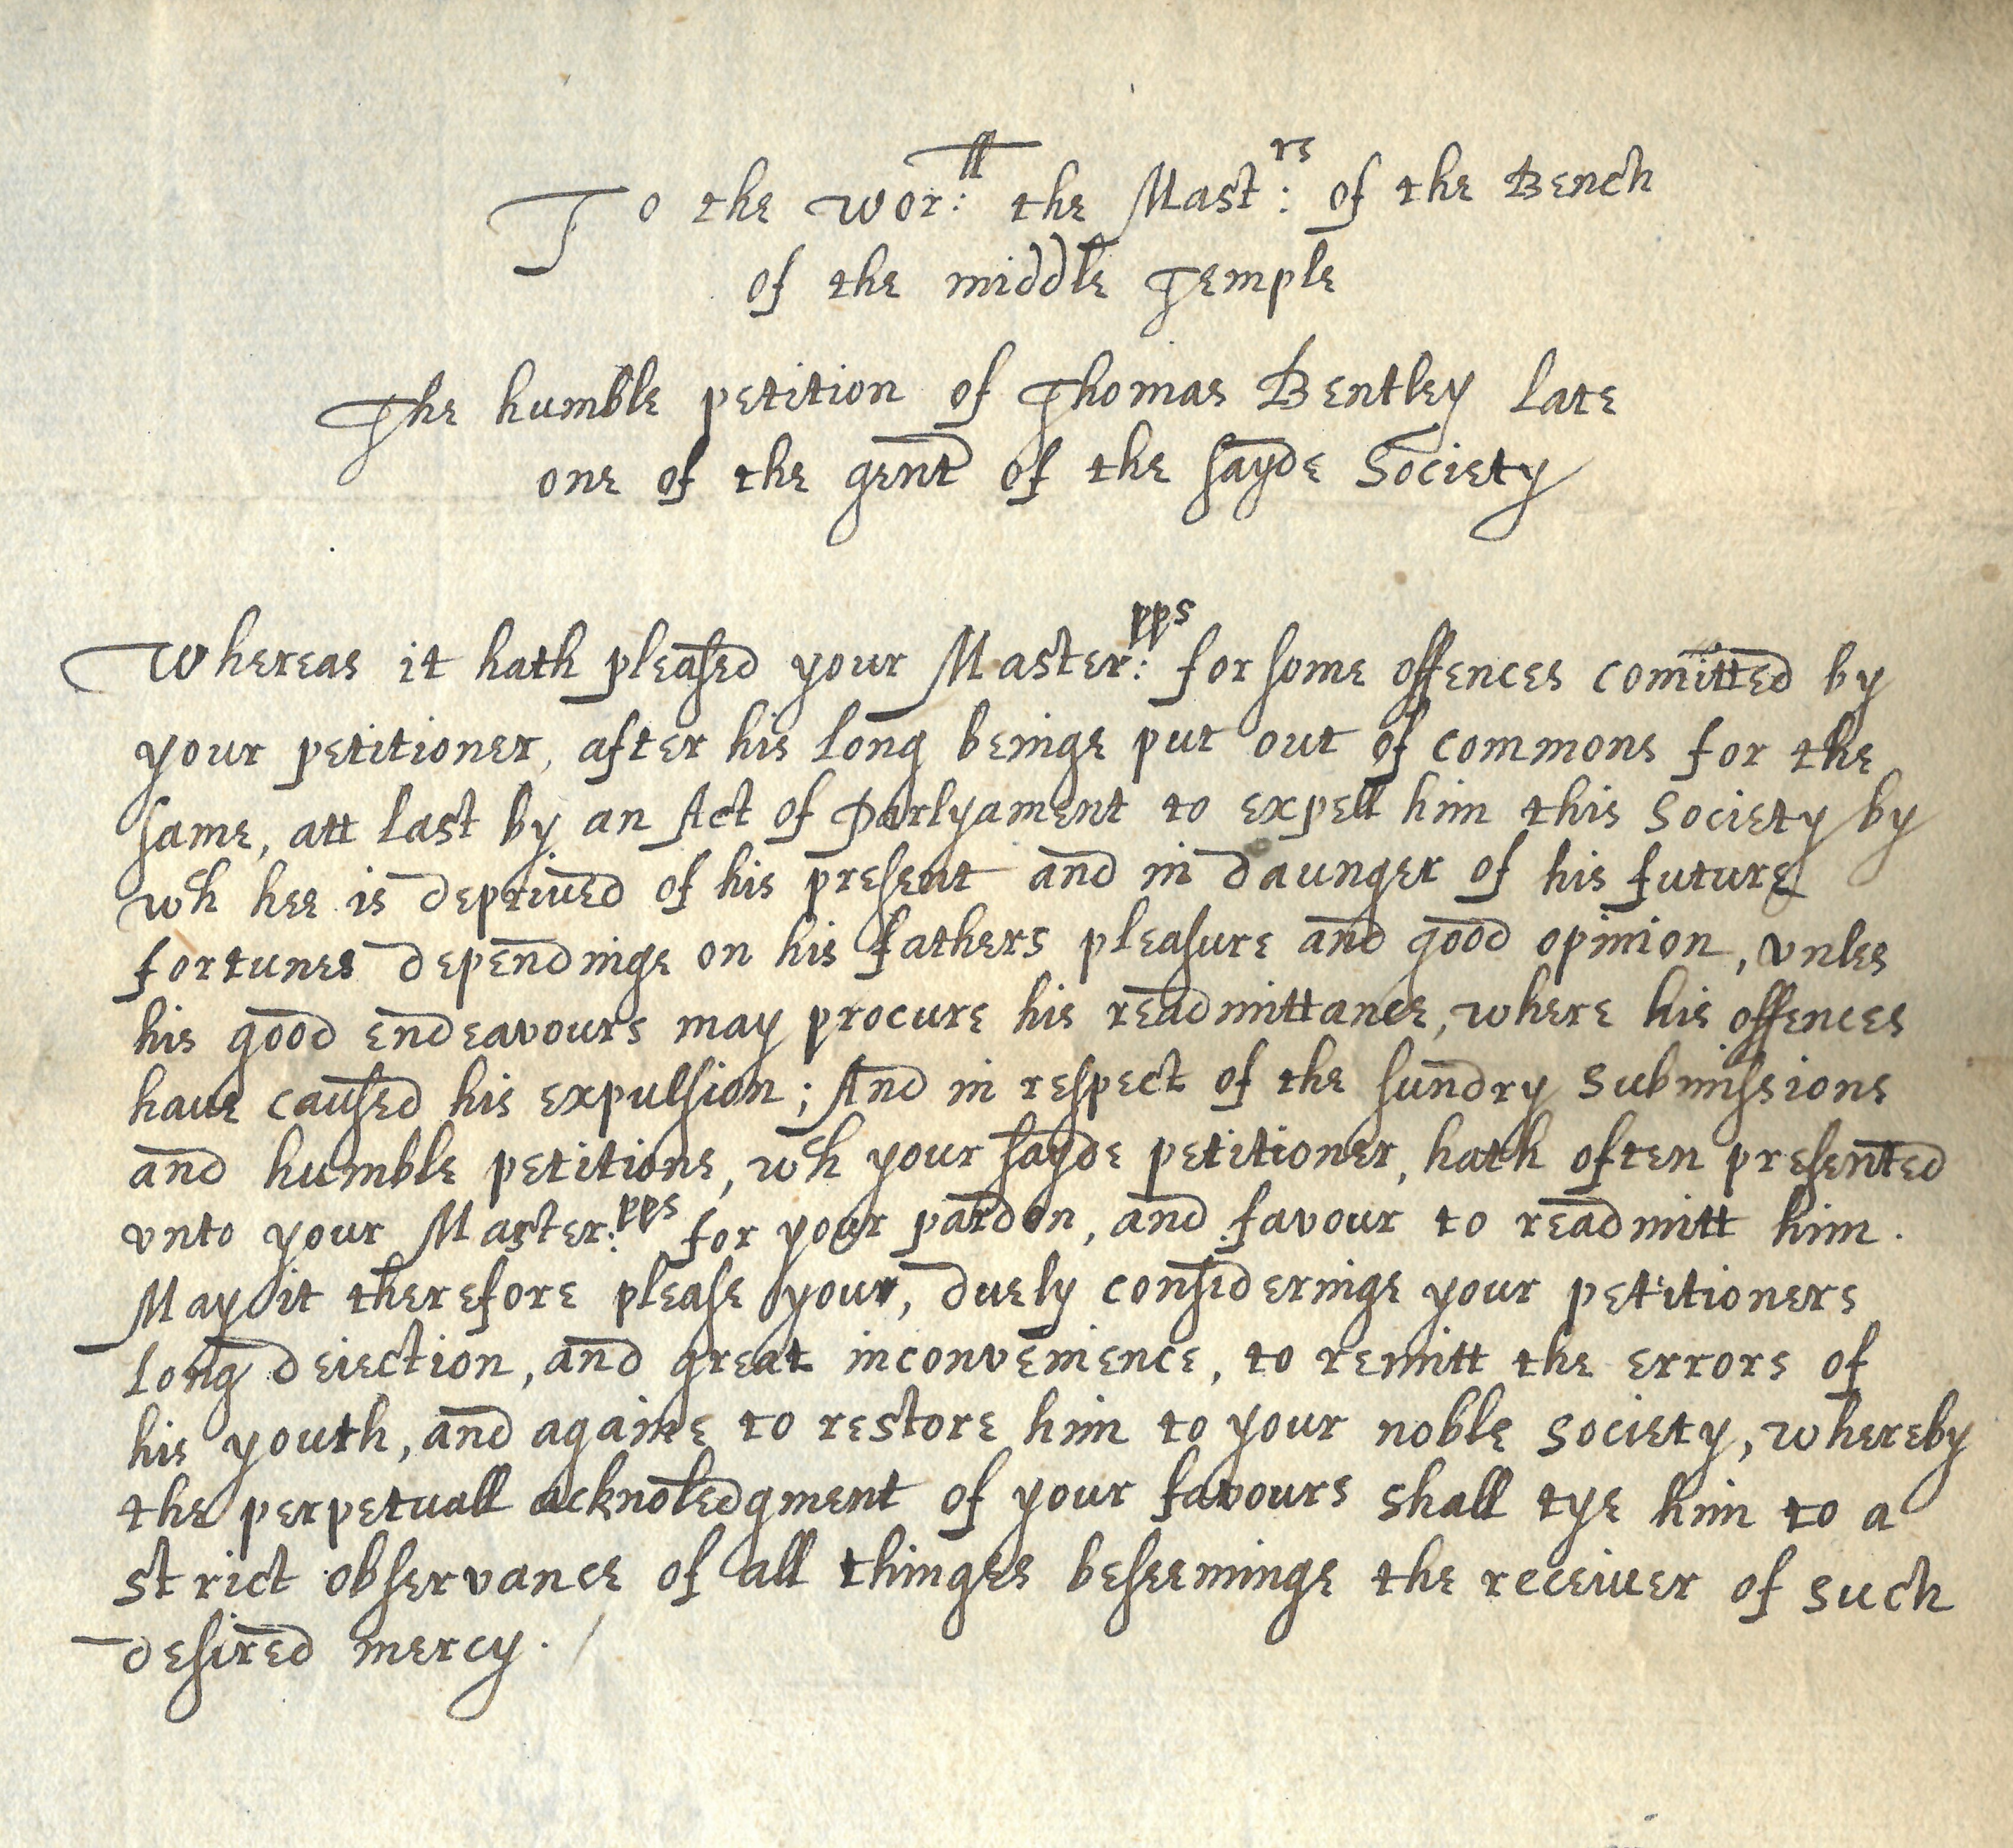 To the wor:ll the Mast:rs of the Bench
of the middle Temple
The humble petition of Thomas Bentley late
one of the gent of the sayde Society
Whereas it hath pleased your Master:pps for some offences comitted by
your petitioner, after his long beinge put out of commons for the
same, att last by an Act of Parlyament to expell him this Society by
wch hee is deprived of his present and in daunger of his future
fortunes dependinge on his fathers pleasure and good opinion, vnles
his good endeavours may procure his readmittance, where his offences
haue caused his expulsion; And in respect of the sundry submissions
and humble petitions, wch your sayde petitioner, hath often presented
vnto your Master:pps for your pardon, and favour to readmitt him.
May it therefore please your, duely consideringe your petitioners
long deiection, and great inconvenience, to remitt the errors of
his youth, and againe to restore him to your noble society, whereby
the perpetuall acknoledgment of your favours shall tye him to a
strict observance of all thinges beseeminge the receiuer of such
desired mercy.